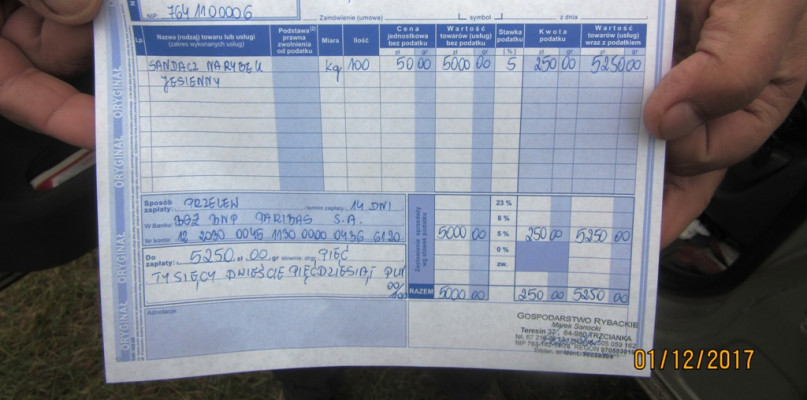 NIP 7641100006
Zamówienie (umowa) symbol z dnia
Lp.
Nazwa (rodzaj) towaru lub usługi (zakres wykonanych usług)
Podstawa prawna zwolnienia od podatku
Miara
Ilość
Cena jednostkowa bez podatku
Wartość towarów (usług) bez podatku
Stawka podatku
Kwota podatku
Wartość towarów (usług) wraz z podatkiem
zł gr zł gr [%] zł gr zł gr
SANDACZ NARYBEK kg 100 50 00 5000 00 5 250 00 5250 00
JESIENNY
ORYGINAŁ
ORYGINAŁ
ORYGINAŁ
ORYGINAŁ
Sposób zapłaty: PRZELEW termin zapłaty 14 DNI
W Banku BGŻ BNP PARIBAS S.A.
Nr konta
Do zapłaty: 5250 zł 00 gr słownie: PIĘĆ
TYSIĘCY DWIEŚCIE PIĘĆDZIESIĄT PLN
00/100
Adnotacje
Zestawienie sprzedaży wg stawek podatku
23 %
8 %
5000 00 5 % 250 00 5250 00
0 %
zw.
RAZEM 5000 00 250 00 5250 00
GOSPODARSTWO RYBACKIE
Marek Sanocki
Teresin 37, 64-980 TRZCIANKA
01/12/2017